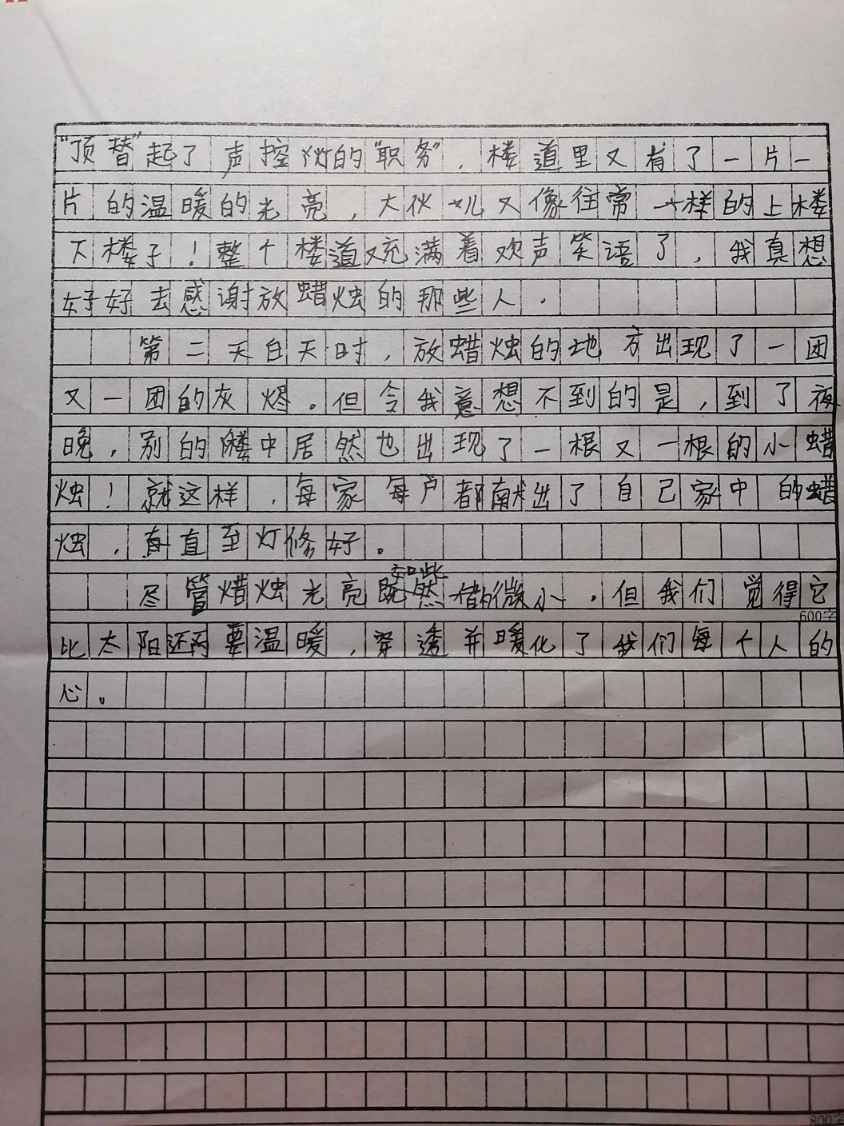 “顶替”起了声控灯的“职务”，楼道里又有了一片一
片的温暖的光亮，大伙儿又像往常一样的上楼
下楼了！整个楼道又充满着欢声笑语了，我真想
好好去感谢放蜡烛的那些人．
第二天白天时，放蜡烛的地方出现了一团
又一团的灰烬。但令我意想不到的是，到了夜
晚，别的楼中居然也出现了一根又一根的小蜡
烛！就这样，每家每户都献出了自己家中的蜡
烛，直至灯修好。
尽管蜡烛光亮是微小，但我们觉得它
600字
比太阳还要温暖，穿透并暖化了我们每个人的
心。
800字